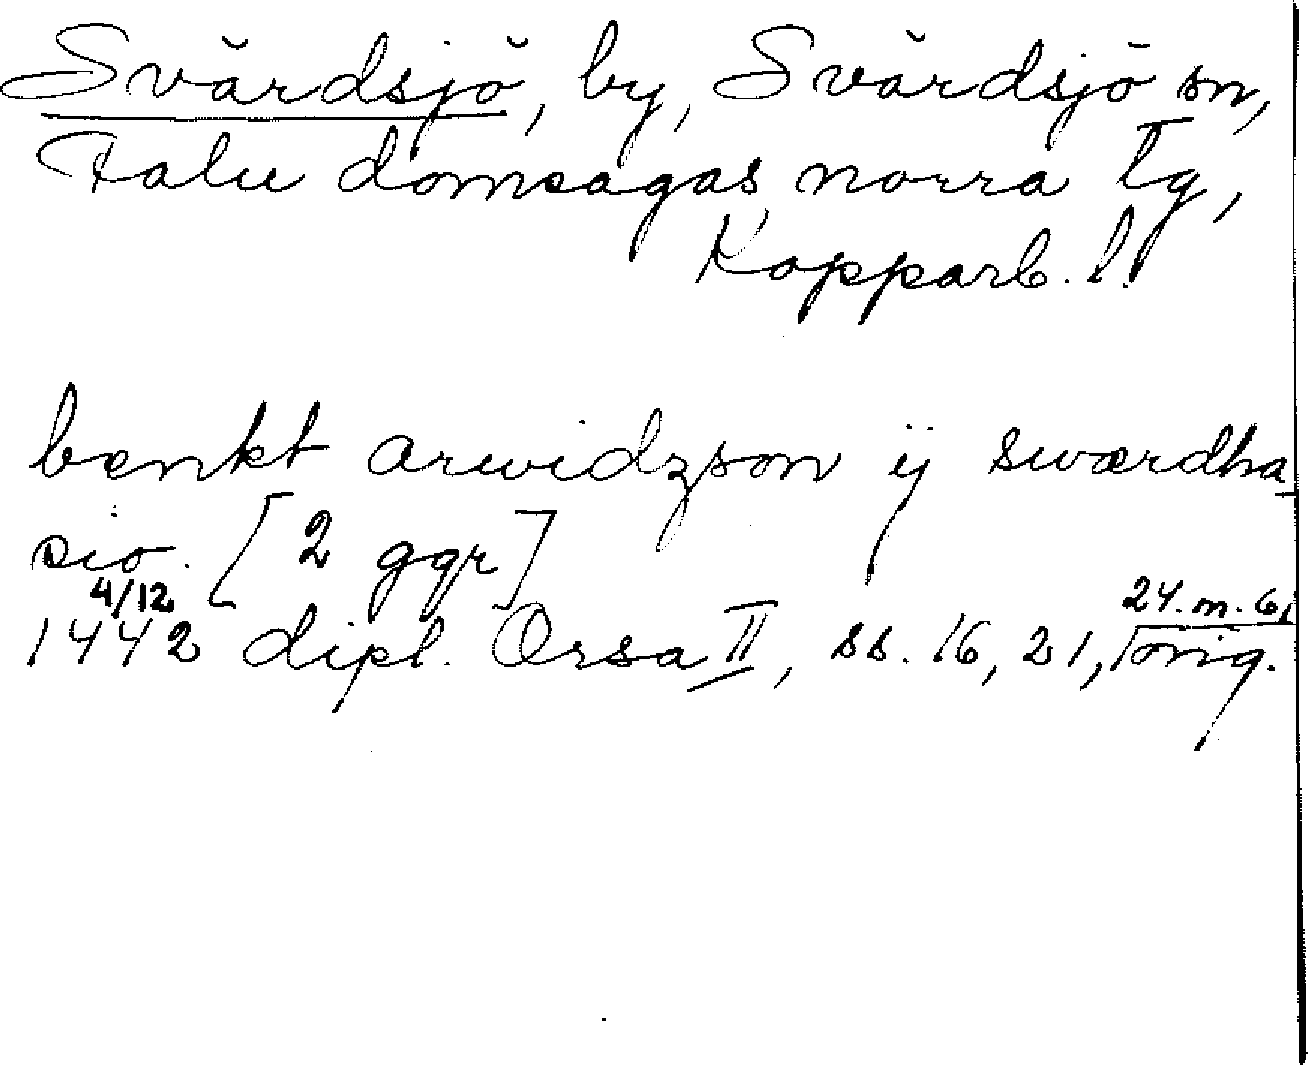 Svärdsjö, by, Svärdsjö sn,
Falu domsagas norra tg,
Kopparb. l.
bænkt arwidzson ij swærdha
sio. [2 ggr]
4/12 24.m.6,
1442 dipl. Orsa II, ss. 16, 21, orig.